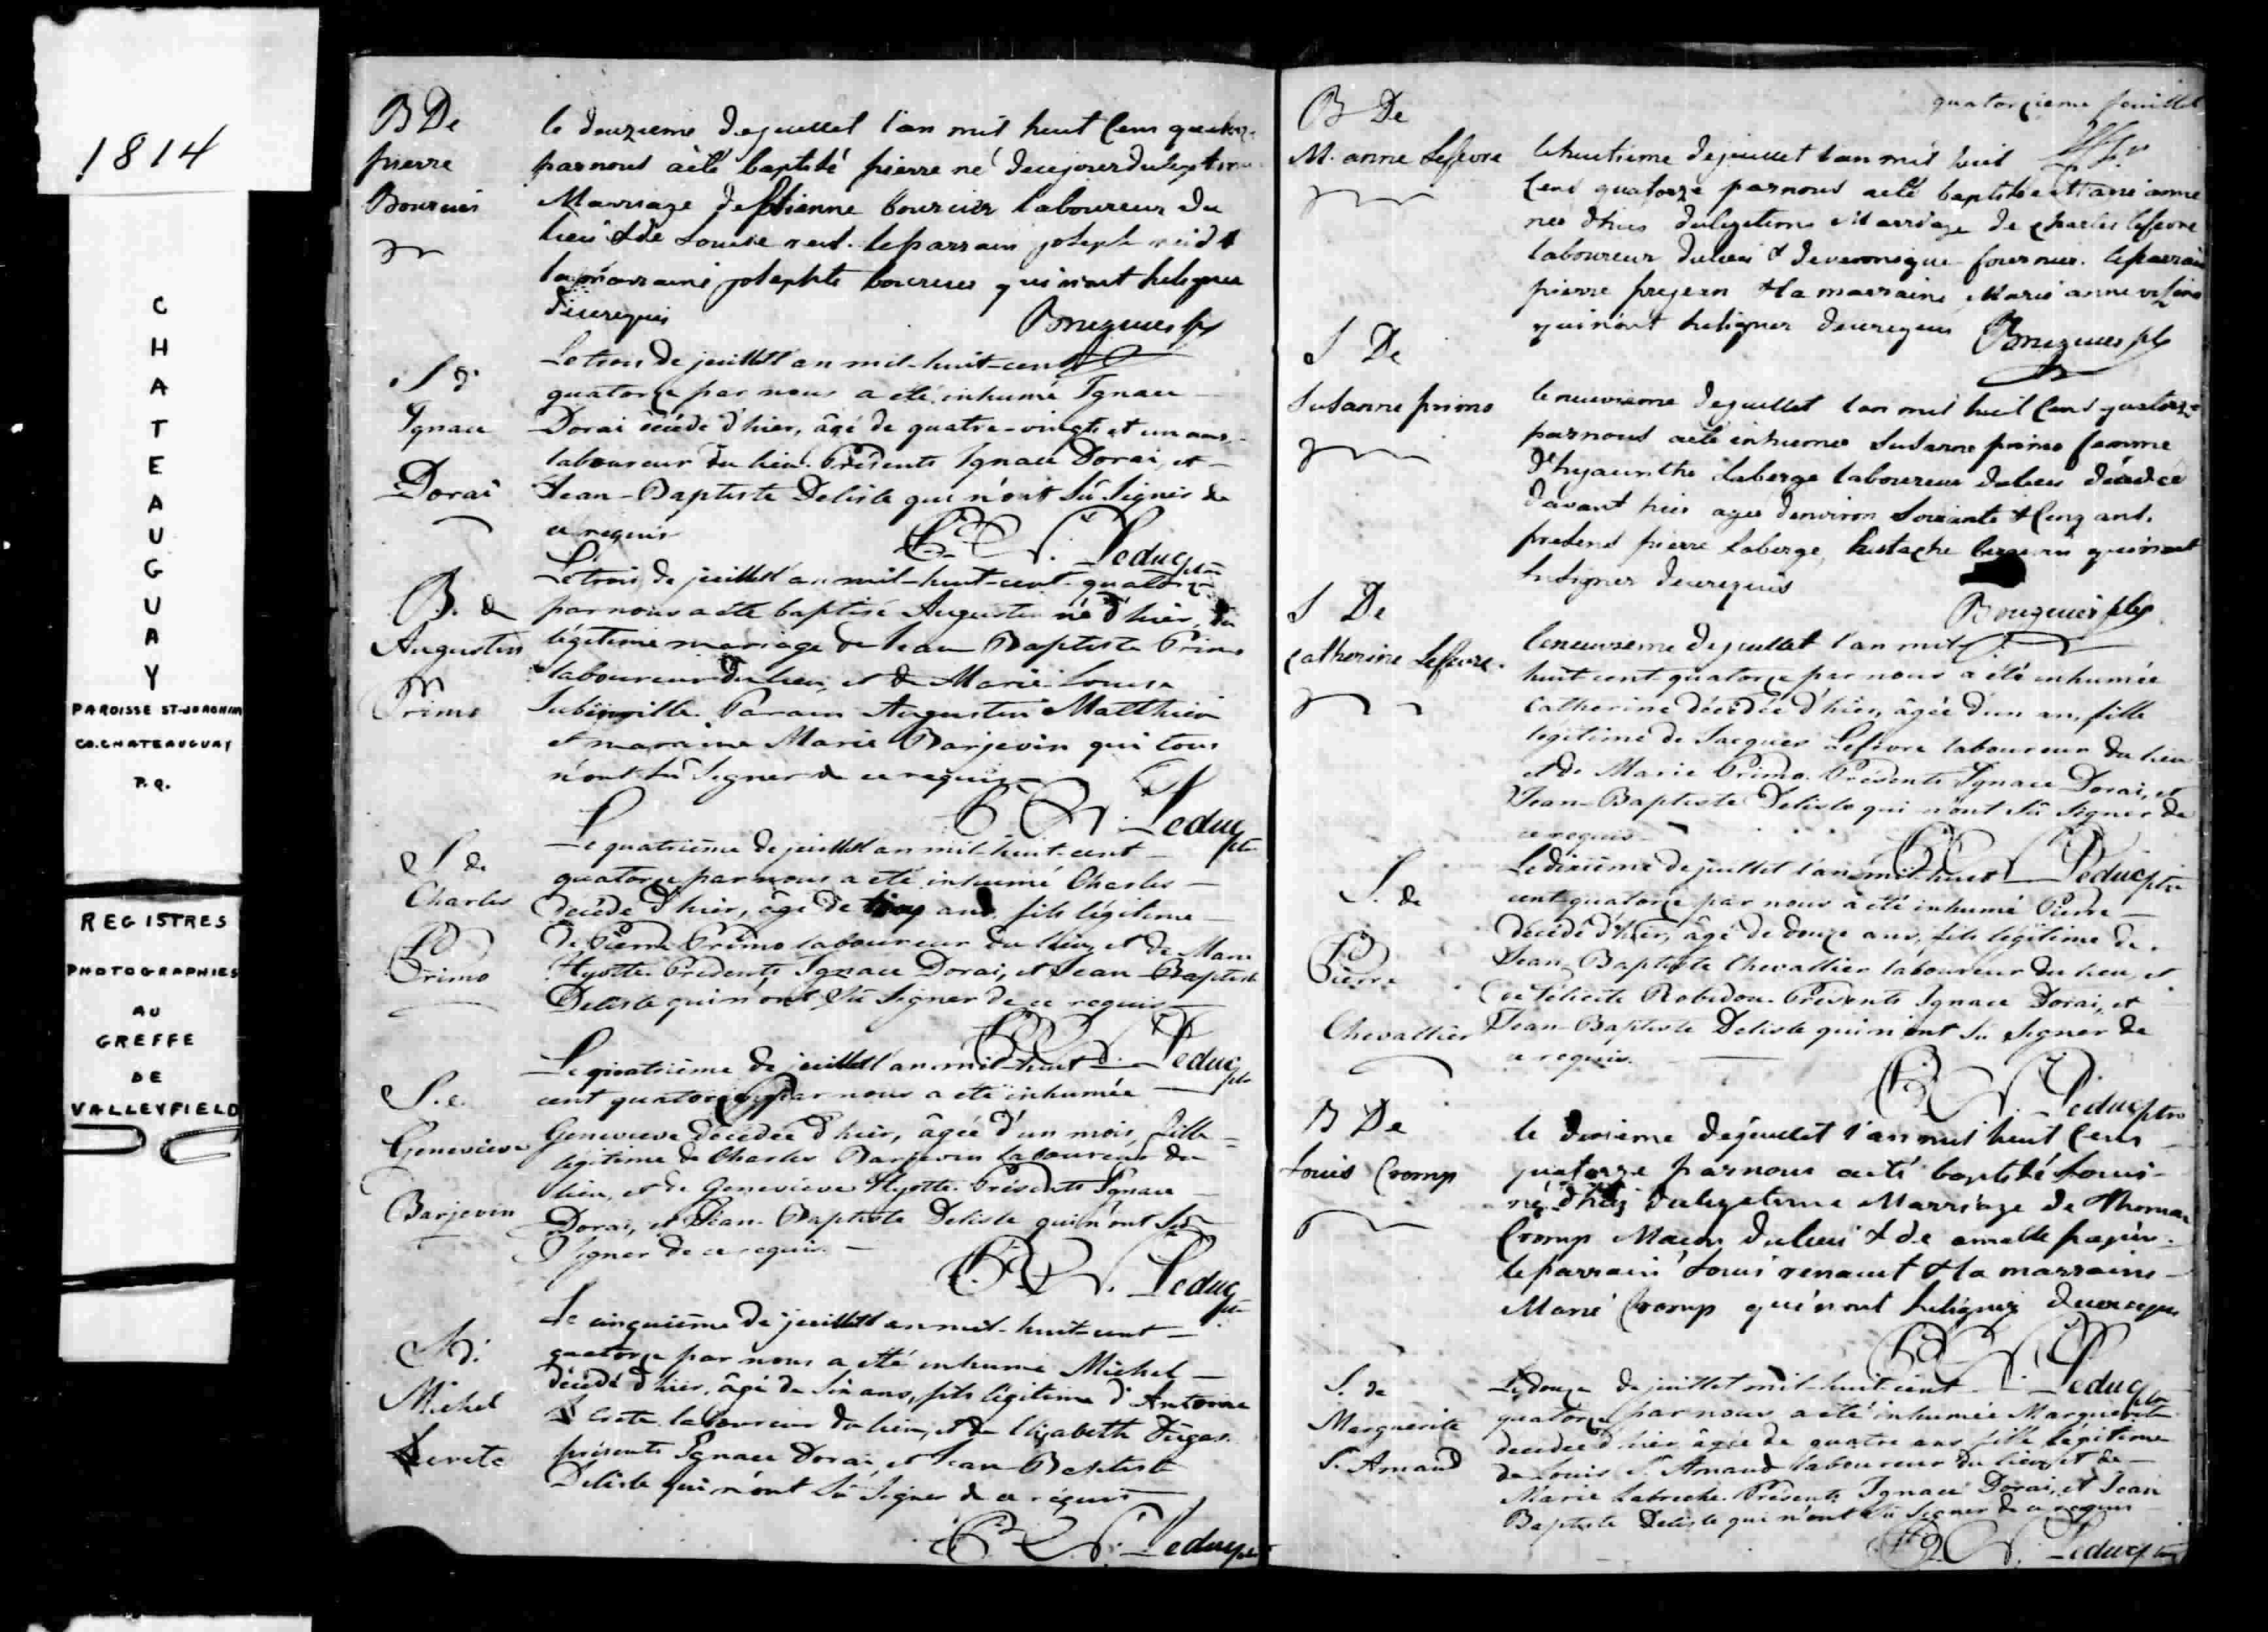 1814
CHATEAUGUAY
PAROISSE ST-JOACHIM
CO. CHATEAUGUAY
P.Q.
REGISTRES
PHOTOGRAPHIES
AU
GREFFE
DE
VALLEYFIELD
B De
pierre
le deuzieme de juillet l'an mil huit Cens
par nous a été baptisé pierre né
Marriage detienne boursier laboureur du
lieu & de Louise reid. le parrain joseph reid &
la marraine josephte qui n'ont su signer
Le trois de juillet l'an mil-huit-cent
S d'
Ignace
Dorai
quatorze par nous a été inhumé Ignace
Dorai décédé d'hier, âgé de quatre-vingts et un ans,
laboureur du lieu. Présents Ignace Dorai, et
Jean-Baptiste Delisle qui n'ont sû signer de
ce requis
Leduc ptre
B. d
Augustin
Primo
Le trois de juillet l'an mil-huit-cent-quatorze
par nous a été baptisé Augustin né d'hier, du
légitime mariage de Jean Baptiste Primo
laboureur du lieu, et de Marie Louise
Parain Augustin Matthieu
et maraine Marie Barjevin qui tous
n'ont sû signer de ce requis
Leduc ptre
S de
Charles
Primo
Le quatrième de juillet l'an mil-huit-cent
quatorze par nous a été inhumé Charles
décédé d'hier, âgé de ans fils légitime
de Pierre Primo laboureur du lieu, et de Marie
Hyotte. Présents Ignace Dorai, et Jean-Baptiste
Delisle qui n'ont sû signer de ce requis
Leduc ptre
S. e.
Genevieve
Barjevin
Le quatrième de juillet l'an mil-huit
cent quatorze par nous a été inhumée
Genevieve décédée d'hier, âgée d'un mois, fille
légitime de Charles Barjevin laboureur du
lieu, et de Genevieve Hyotte. Présents Ignace
Dorai, et Jean-Baptiste Delisle qui n'ont sû
signer de ce requis.
Leduc ptre
S d.
Michel
Le cinquième de juillet l'an mil-huit-cent
quatorze par nous a été inhumé Michel
décédé d'hier, âgé de six ans, fils légitime d'Antoine
laboureur du lieu, et de Elizabeth Dugas.
présents Ignace Dorai, et Jean Baptiste
Delisle qui n'ont sû signer de ce requis
Leduc ptre
quatorzieme feuillet
B De
M. anne Lefevre
le huitieme de juillet l'an mil huit
Cens quatorze par nous a été baptisée Marie anne
née d'hier du legitime Marriage de Charles lefevre
laboureur du lieu & de veronique fournier. le parrain
pierre prejean & la marraine Marie anne
qui n'ont su signer de ce requis
S De
Susanne primo
le neuvieme de juillet l'an mil huit Cens quatorze
par nous a été inhumée Susanne primo femme
d'hyacinthe Laberge laboureur du lieu décédée
d'avant hier agée d'environ Soixante & Cinq ans.
presens pierre Laberge, Eustache qui n'ont
su signer de ce requis
S De
Catherine Lefevre.
le neuvieme de juillet l'an mil
huit cent quatorze par nous a été inhumée
Catherine décédée d'hier, âgée d'un an, fille
légitime de Jacques Lefevre laboureur du lieu
et de Marie Primo. Présents Ignace Dorai, et
Jean-Baptiste Delisle qui n'ont sû signer de
ce requis.
Leduc ptre
S. de
Pierre
Chevallier
Le dixième de juillet l'an mil-huit
cent quatorze par nous a été inhumé Pierre
décédé d'hier, âgé de douze ans, fils légitime de
Jean-Baptiste Chevallier laboureur du lieu, et
de Félicité Robidou. Présents Ignace Dorai, et
Jean-Baptiste Delisle qui n'ont sû signer de
ce requis.
Leduc ptre
B De
Louis Cromp
le dixieme de juillet l'an mil huit Cens
quatorze par nous a été baptisé Louis
né d'hier du legitime Marriage de Thomas
Cromp Maçon du lieu & de amable
le parrain Louis renaut & la marraine
Marie Cromp qui n'ont su signer de ce requis
Leduc ptre
S. de
Marguerite
S. Amand
Le douze de juillet mil-huit-cent
quatorze par nous a été inhumée Marguerite
décédée d'hier âgée de quatre ans fille légitime
de Louis St. Amand laboureur du lieu, et de
Marie Labreche. Présents Ignace Dorai, et Jean
Baptiste Delisle qui n'ont sû signer de ce requis
Leduc ptre